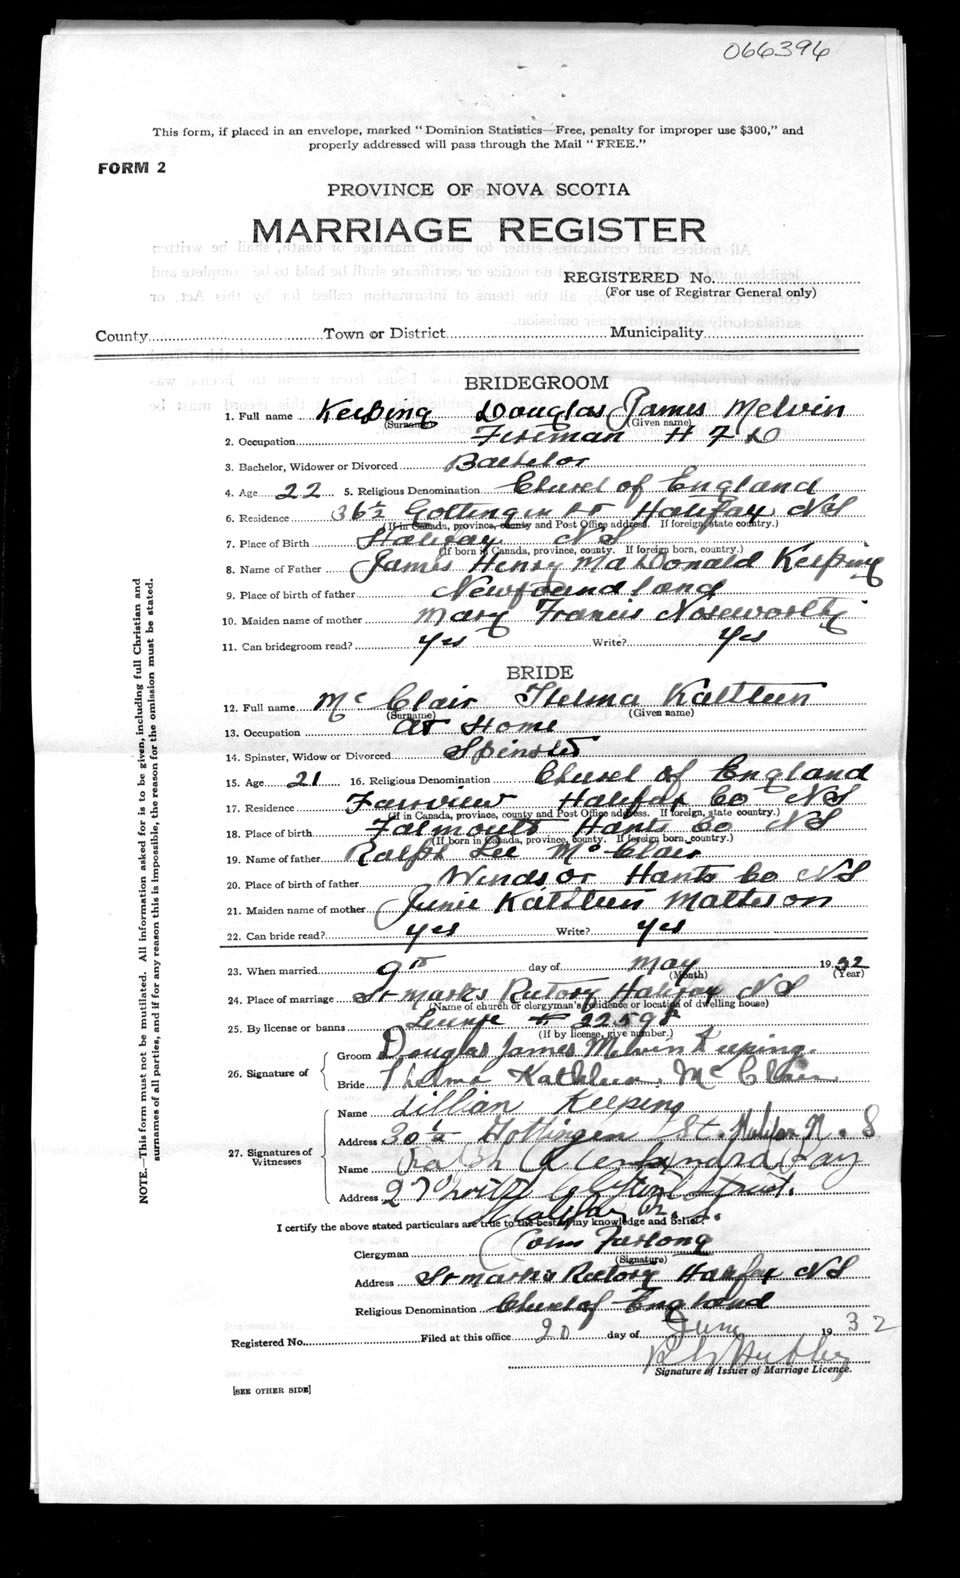 066396
This form, if placed in an envelope, marked "Dominion Statistics—Free, penalty for improper use $300," and
properly addressed will pass through the Mail "FREE."
FORM 2
PROVINCE OF NOVA SCOTIA
MARRIAGE REGISTER
REGISTERED No.
(For use of Registrar General only)
County Town or District Municipality
BRIDEGROOM
1. Full name Keeping Douglas James Melvin
(Surname) (Given name)
2. Occupation Fireman H F D
3. Bachelor, Widower or Divorced Bachelor
4. Age 22 5. Religious Denomination Church of England
6. Residence 36½ Gottingen St Halifax NS
(If in Canada, province, county and Post Office address. If foreign, state country.)
7. Place of Birth Halifax NS
(If born in Canada, province, county. If foreign born, country.)
8. Name of Father James Henry MaDonald Keeping
9. Place of birth of father Newfoundland
10. Maiden name of mother Mary Francis Noseworthy
11. Can bridegroom read? Yes Write? Yes
BRIDE
12. Full name McClair Thelma Kathleen
(Surname) (Given name)
13. Occupation At Home
14. Spinster, Widow or Divorced Spinster
15. Age 21 16. Religious Denomination Church of England
17. Residence Fairview Halifax Co NS
(If in Canada, province, county and Post Office address. If foreign, state country.)
18. Place of birth Falmouth Hants Co NS
(If born in Canada, province, county. If foreign born, country.)
19. Name of father Ralph Lee McClair
20. Place of birth of father Windsor Hants Co NS
21. Maiden name of mother Junie Kathleen Matteson
22. Can bride read? Yes Write? Yes
23. When married 9th day of May 1932
(Month) (Year)
24. Place of marriage St Marks Rectory Halifax NS
(Name of church or clergyman's residence or location of dwelling house)
25. By license or banns License #
(If by license, give number.)
26. Signature of
Groom Douglas James Melvin Keeping.
Bride Thelma Kathleen McClair
27. Signatures of Witnesses
Name Lillian Keeping
Address 30½ Gottingen St. Halifax N.S
Name Ralph
Address Street.
Halifax N.S.
I certify the above stated particulars are true to the best of my knowledge and belief.
Clergyman Furlong
(Signature)
Address St Marks Rectory Halifax NS
Religious Denomination Church of England
Registered No. Filed at this office 20 day of June 1932
Signature of Issuer of Marriage Licence.
[SEE OTHER SIDE]
NOTE.—This form must not be mutilated. All information asked for is to be given, including full Christian and
surnames of all parties, and if for any reason this is impossible, the reason for the omission must be stated.